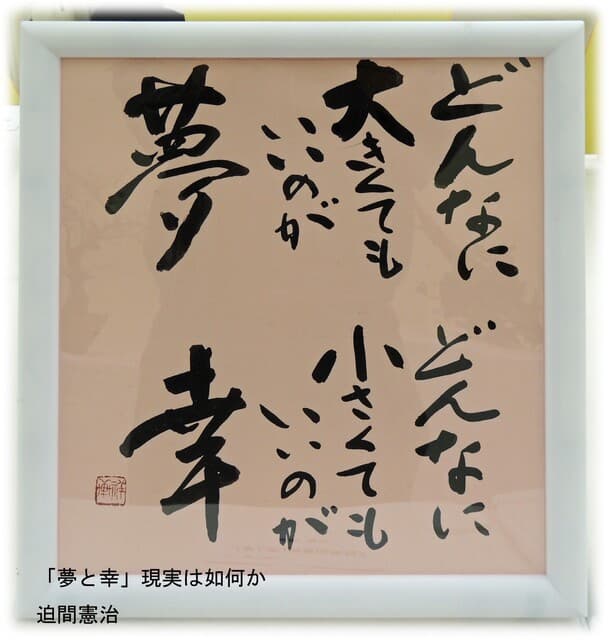 どんなに
大きくても
いいのが
夢
どんなに
小さくても
いいのが
幸
「夢と幸」現実は如何か
迫間憲治